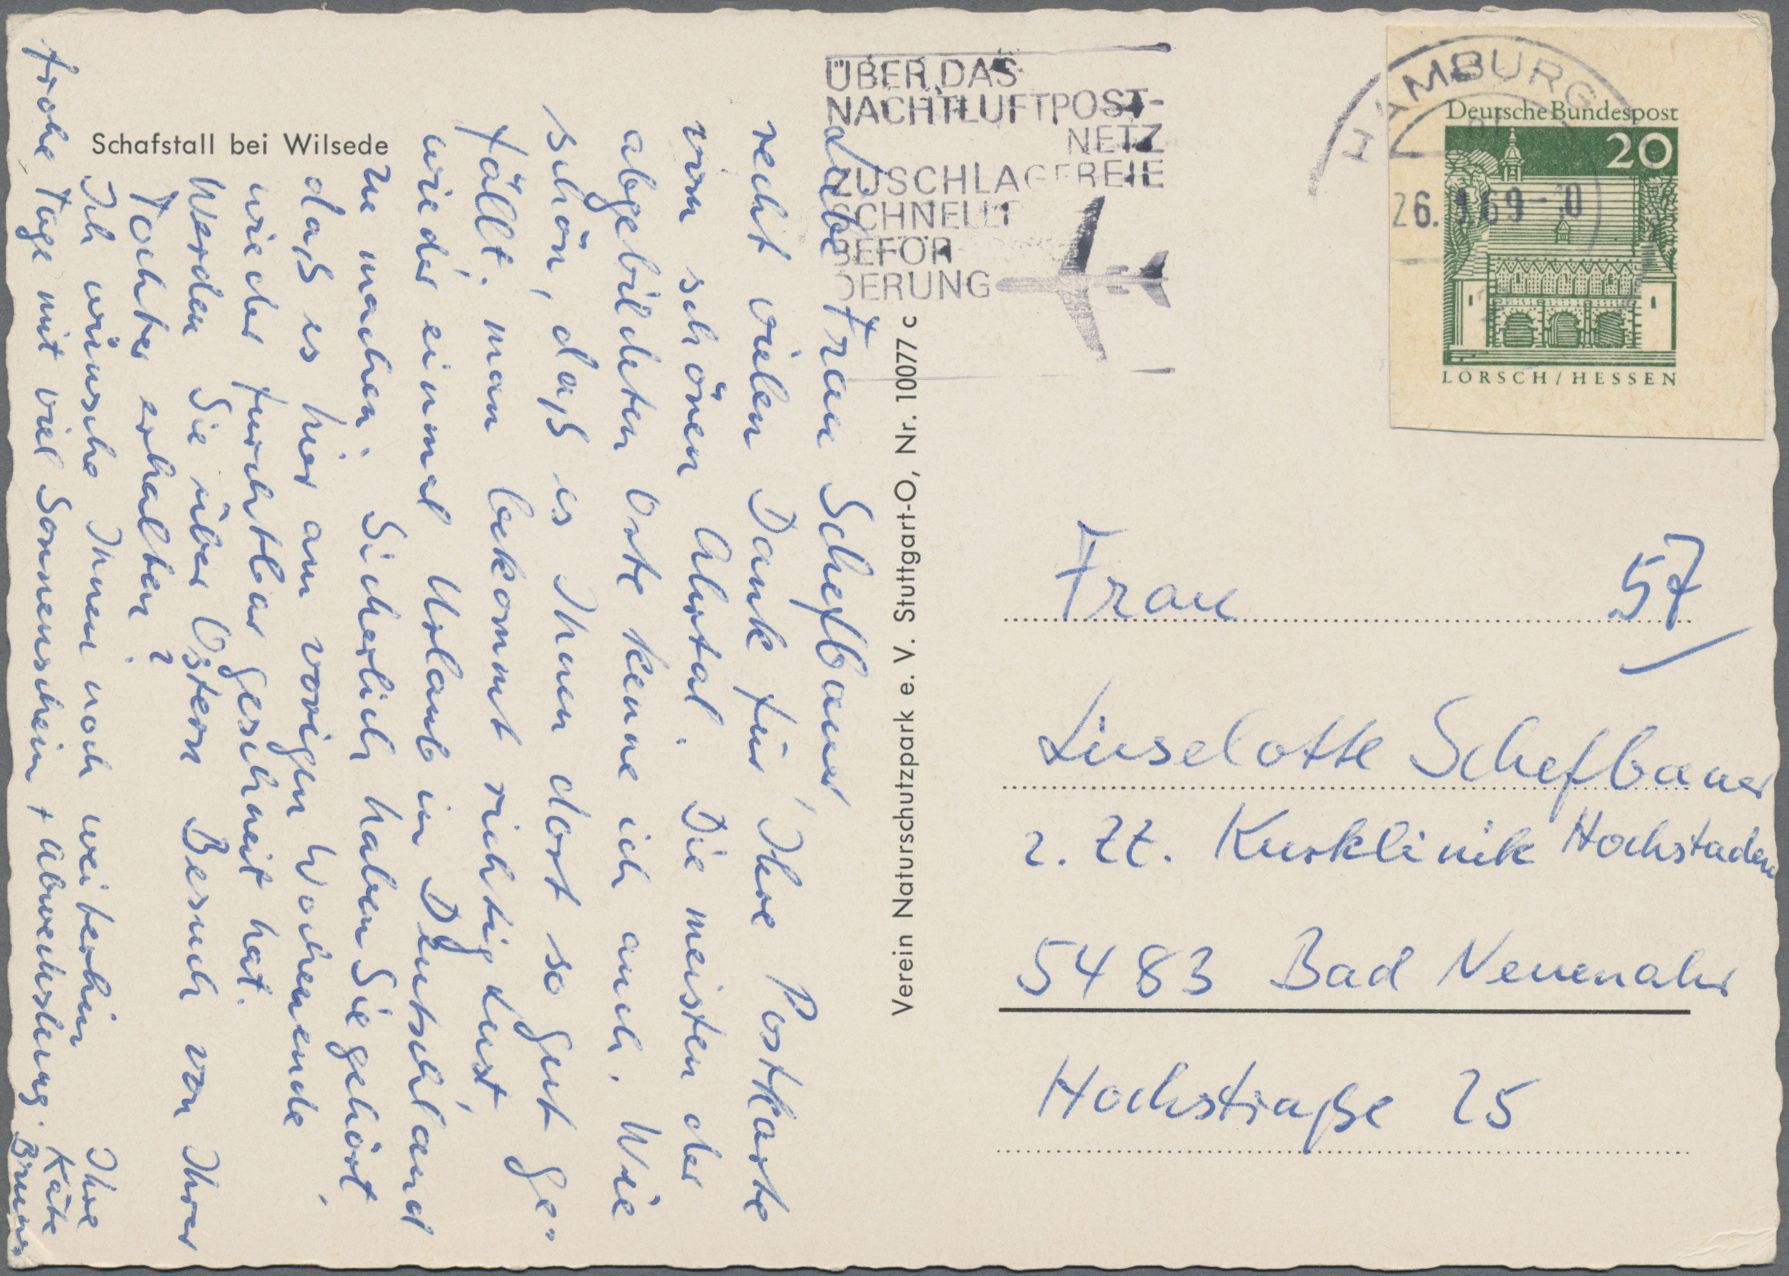 Schafstall bei Wilsede
Liebe Frau Schefbauer,
recht vielen Dank für Ihre Postkarte
vom schönen Ahrtal. Die meisten der
abgebildeten Orte kenne ich auch. Wie
schön, daß es Ihnen dort so gut ge-
fällt. man bekommt richtig Lust,
wieder einmal Urlaub in Deutschland
zu machen. Sicherlich haben Sie gehört,
daß es hier am vorigen Wochenende
wieder furchtbar geschneit hat.
Werden Sie über Ostern Besuch von Ihrer
Tochter erhalten?
Ich wünsche Ihnen noch weiterhin
frohe Tage mit viel Sonnenschein + Abwechslung.
Ihre
Käte
Verein Naturschutzpark e. V. Stuttgart-O, Nr. 10077 c
ÜBER DAS
NACHTLUFTPOST-
NETZ
ZUSCHLAGFREIE
SCHNELLE
BEFÖR-
DERUNG
HAMBURG
26. 69-
Deutsche Bundespost
20
LORSCH/HESSEN
Frau 57
Liselotte Schefbauer
z. Zt. Kurklinik Hochstaden
5483 Bad Neuenahr
Hochstraße 25